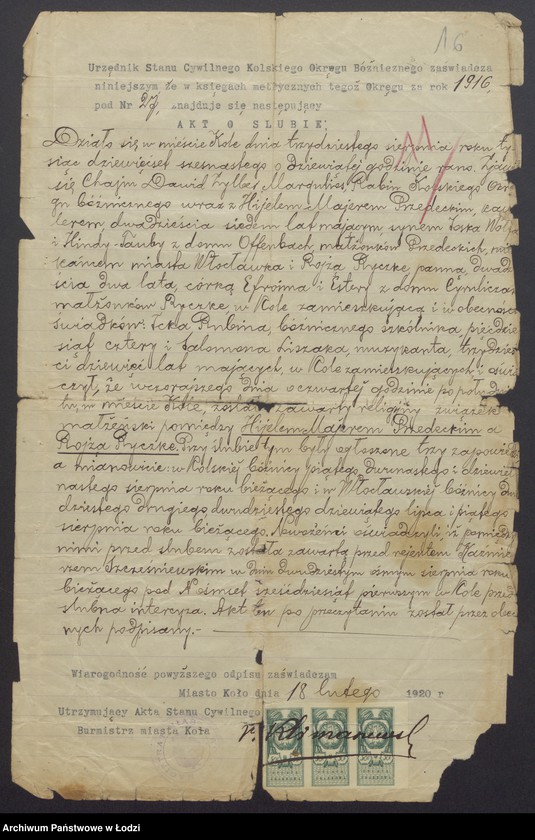 16
Urzędnik Stanu Cywilnego Kolskiego Okręgu Bóżniczego zaświadcza
niniejszym że w księgach metrycznych tegoż Okręgu za rok 1916,
pod Nr 27, znajduje się następujący
AKT O ŚLUBIE:
Działo się w mieście Kole dnia trzydziestego sierpnia roku ty-
siąc dziewięćset szesnastego o dziewiątej godzinie rano. Zjawił
się Chajm Dawid Zylber Margulies, Rabin Kolskiego Okrę-
gu Bóżniczego wraz z Hijelem-Majerem Przedeckim, kawa-
lerem, dwadzieścia siedem lat mającym, synem Joska Wolfa
i Hindy-Tauby z domu Offenbach, małżonków Przedeckich,
kańcem miasta Włocławka i Rojżą Ryczke, panną, dwadzie
ścia dwa lata, córką Efroima i Estery z domu
małżonków Ryczke w Kole zamieszkującą i w obecności
świadków: Icka Rubina, bóżniczego szkolnika pięćdzie
siąt cztery i Salomona Liszaka, muzykanta, trzydzieś
ci dziewięć lat mających, w Kole zamieszkujących i oświad
czył, że wczorajszego dnia o czwartej godzinie po połud
tu, w mieście Kole, został zawarty religijny związek
małżeński pomiędzy Hijelem-Majerem Przedeckim a
Rojżą Ryczke. Przy ślubie tym były ogłoszone trzy zapowiedzi
a mianowicie: w Kolskiej bóżnicy piątego, dwunastego i dziewięt
nastego sierpnia roku bieżącego i w Włocławskiej bóżnicy dwu
dziestego drugiego, dwudziestego dziewiątego lipca i piątego
sierpnia roku bieżącego. Nowożeńcy oświadczyli, iż pomiędzy
nimi przed ślubem została zawartą przed rejentem Kaźmie-
rzem Szcześniewskim w dniu dwudziestym ósmym sierpnia roku
bieżącego pod No ośmset sześćdziesiąt pierwszym w Kole przed
ślubna intercyza. Akt ten po przeczytaniu został przez obec
nych podpisany.-
Wiarogodność powyższego odpisu zaświadczam
Miasto Koło dnia 18 lutego 1920 r
Utrzymujący Akta Stanu Cywilnego
Burmistrz miasta Koła
Archiwum Państwowe w Łodzi